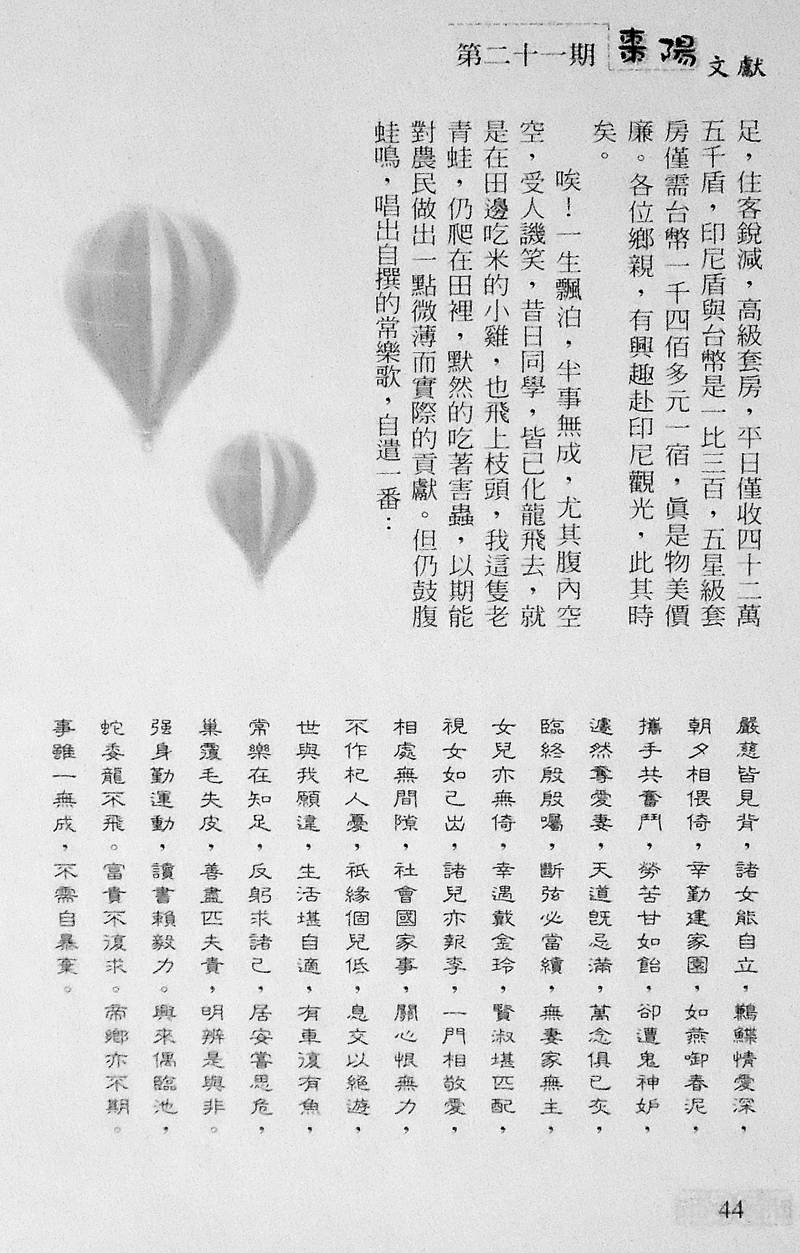 第二十一期 棗陽文獻
足，住客銳減，高級套房，平日僅收四十二萬
五千盾，印尼盾與台幣是一比三百，五星級套
房僅需台幣一千四佰多元一宿，眞是物美價
廉。各位鄉親，有興趣赴印尼觀光，此其時
矣。
唉！一生飄泊，半事無成，尤其腹內空
空，受人譏笑，昔日同學，皆已化龍飛去，就
是在田邊吃米的小雞，也飛上枝頭，我這隻老
青蛙，仍爬在田裡，默然的吃著害蟲，以期能
對農民做出一點微薄而實際的貢獻。但仍鼓腹
蛙鳴，唱出自撰的常樂歌，自遣一番：
嚴慈皆見背，諸女能自立，鶼鰈情愛深，
朝夕相偎倚，辛勤建家園，如燕啣春泥，
攜手共奮鬥，勞苦甘如飴，卻遭鬼神妒，
遽然奪愛妻，天道旣忌滿，萬念俱已灰，
臨終殷殷囑，斷弦必當續，無妻家無主，
女兒亦無倚，幸遇戴金玲，賢淑堪匹配，
視女如己出，諸兒亦報李，一門相敬愛，
相處無間隙，社會國家事，關心恨無力，
不作杞人憂，祇緣個兒低，息交以絕遊，
世與我願違，生活堪自適，有車復有魚，
常樂在知足，反躬求諸己，居安嘗思危，
巢覆毛失皮，善盡匹夫責，明辨是與非。
强身勤運動，讀書賴毅力。興來偶臨池，
蛇委龍不飛。富貴不復求。帝鄉亦不期。
事雖一無成，不需自暴棄。
44